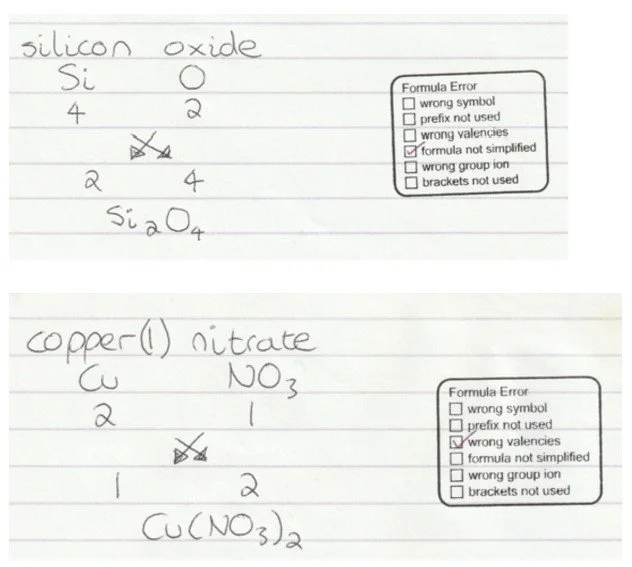 silicon oxide
Si O
4 2
2 4
Si₂O₄
Formula Error
wrong symbol
prefix not used
wrong valencies
formula not simplified
wrong group ion
brackets not used
copper(1) nitrate
Cu NO₃
2 1
1 2
Cu(NO₃)₂
Formula Error
wrong symbol
prefix not used
wrong valencies
formula not simplified
wrong group ion
brackets not used